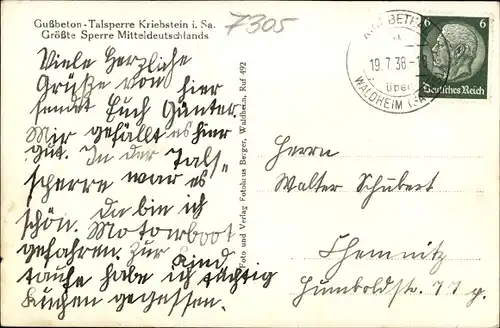 Gußbeton-Talsperre Kriebstein i. Sa.
Größte Sperre Mitteldeutschlands
7305
Viele herzliche
Grüße von hier
sendet Euch Günter.
Mir gefällt es hier
gut. In der Tals-
sperre war es
schön. Da bin ich
Motorboot
gefahren. Zur Kind
taufe habe ich tüchtig
Kuchen gegessen.
Foto und Verlag Fotohaus Berger, Waldheim, Ruf 492
19.7.38-
über
WALDHEIM (SA
6 6
Deutsches Reich
Herrn
Walter Schubert
Chemnitz
Humboldstr. 77 g.